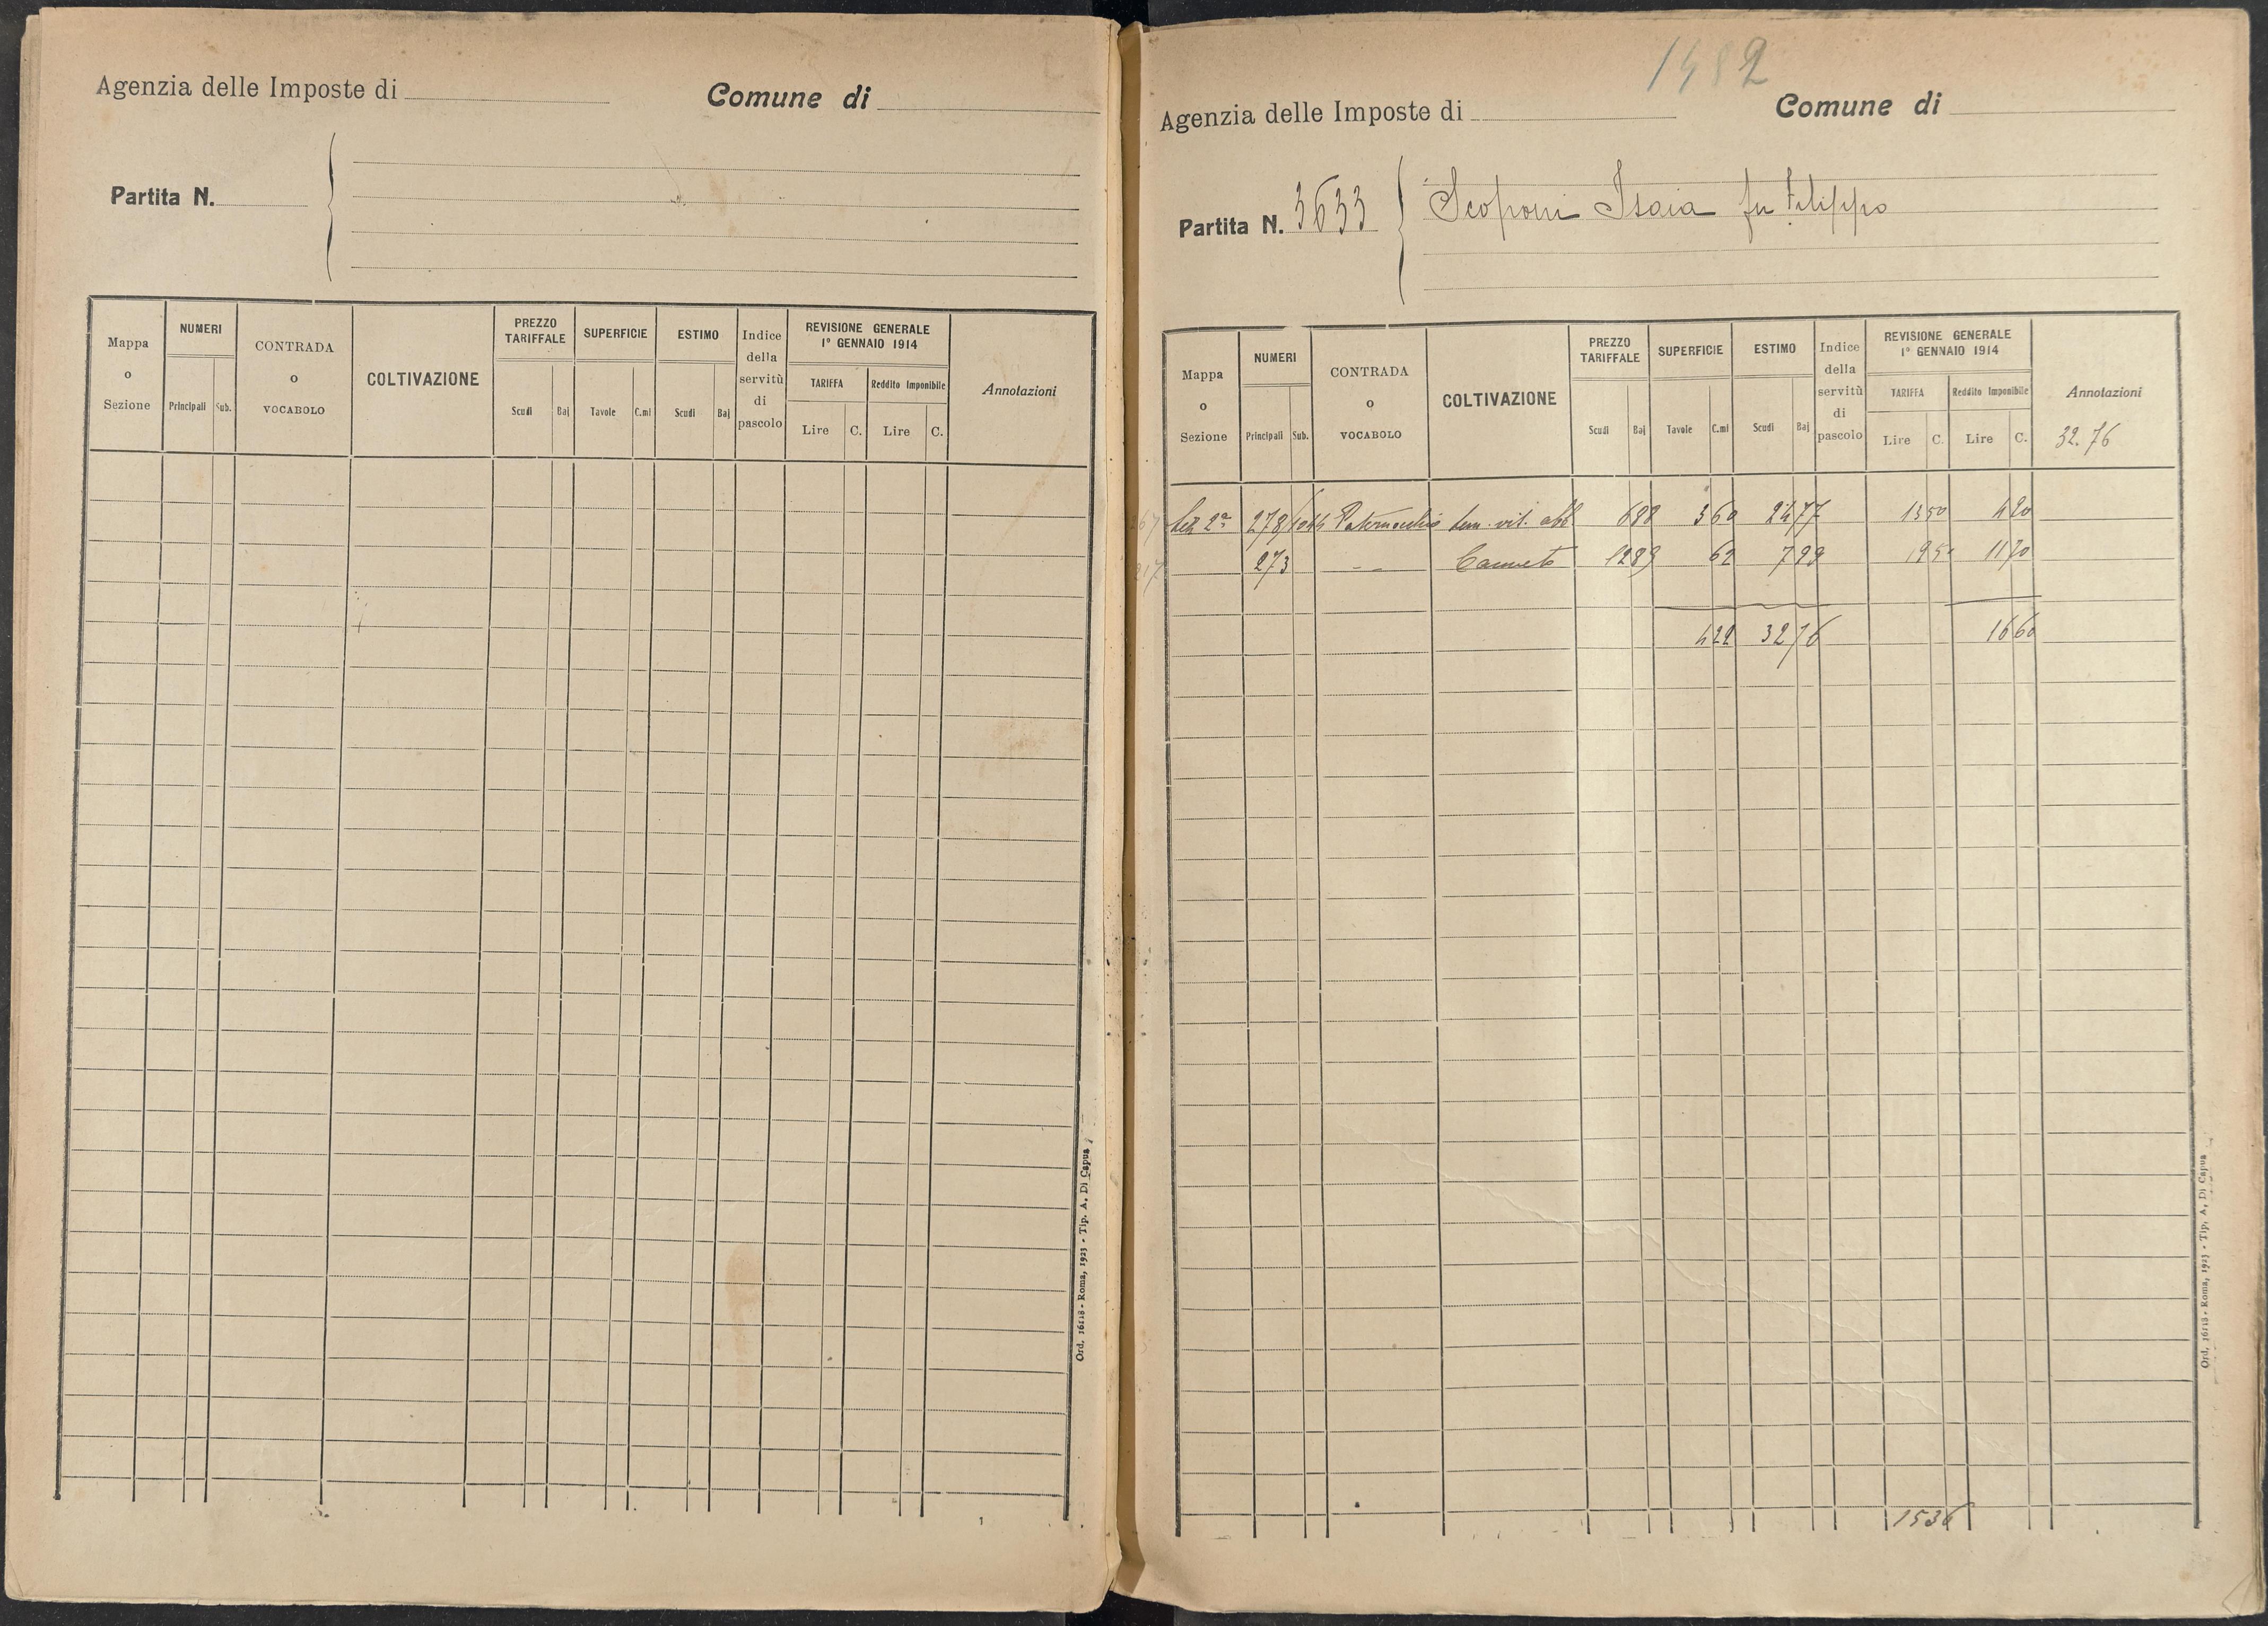 Agenzia delle Imposte di
Comune di
Partita N.
Mappa o Sezione
NUMERI
Principali Sub.
CONTRADA o VOCABOLO
COLTIVAZIONE
PREZZO TARIFFALE
Scudi Baj
SUPERFICIE
Tavole C.mi
ESTIMO
Scudi Baj
Indice della servitù di pascolo
REVISIONE GENERALE
1° GENNAIO 1914
TARIFFA Reddito Imponibile
Lire C. Lire C.
Annotazioni
Ord. 16118 - Roma, 1923 - Tip. A. Di Capua
1482
Agenzia delle Imposte di
Comune di
Partita N. 3633
Scoponi Isaia fu Filippo
Mappa o Sezione
NUMERI
Principali Sub.
CONTRADA o VOCABOLO
COLTIVAZIONE
PREZZO TARIFFALE
Scudi Baj
SUPERFICIE
Tavole C.mi
ESTIMO
Scudi Baj
Indice della servitù di pascolo
REVISIONE GENERALE
1° GENNAIO 1914
TARIFFA Reddito Imponibile
Lire C. Lire C.
Annotazioni
32.76
Sez 2ª 278 sem. vit. 688 360 2477 1350
273 Canneto 1289 62 799 1950
422 3276 1660
1536
Ord. 16118 - Roma, 1923 - Tip. A. Di Capua